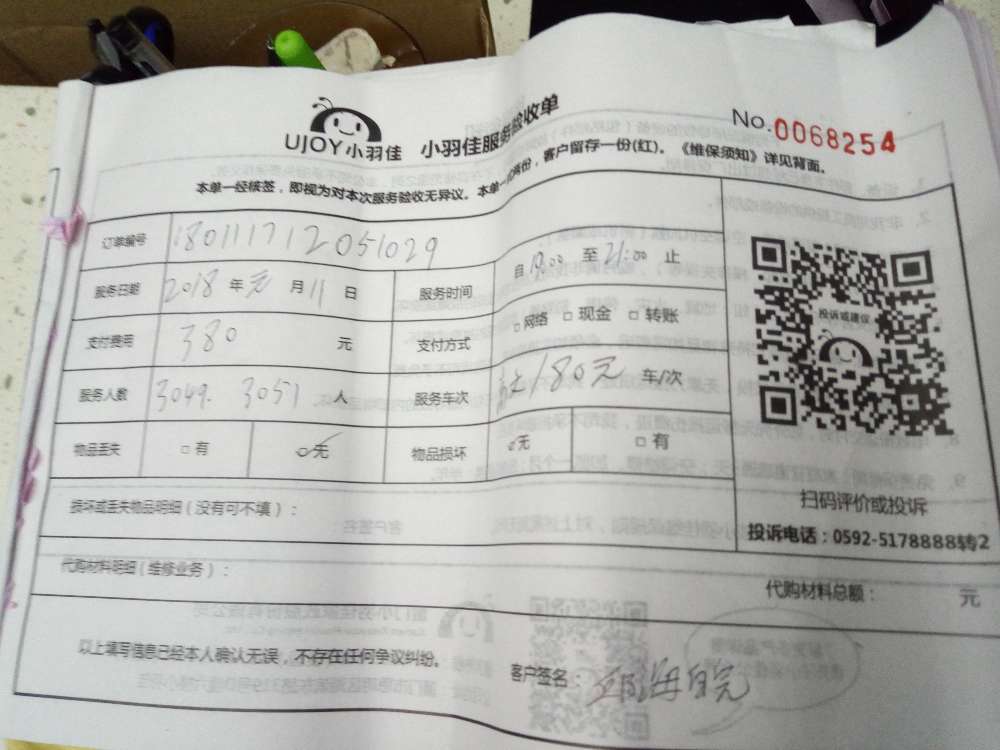 UJOY小羽佳 小羽佳服务验收单
No.0068254
本单一经核签，即视为对本次服务验收无异议。本单一式两份，客户留存一份(红)。《维保须知》详见背面。
订单编号 180111712051029
服务日期 2018 年 元 月 11 日 服务时间 自 19:00 至 21:00 止
支付费用 380 元 支付方式 □网络 □现金 □转账
服务人数 3049. 3051 人 服务车次 180元 车/次
物品丢失 □有 □无 物品损坏 □无 □有
投诉或建议
扫码评价或投诉
投诉电话：0592-5178888转2
损坏或丢失物品明细（没有可不填）：
代购材料明细（维修业务）： 代购材料总额： 元
以上填写信息已经本人确认无误，不存在任何争议纠纷。
客户签名：